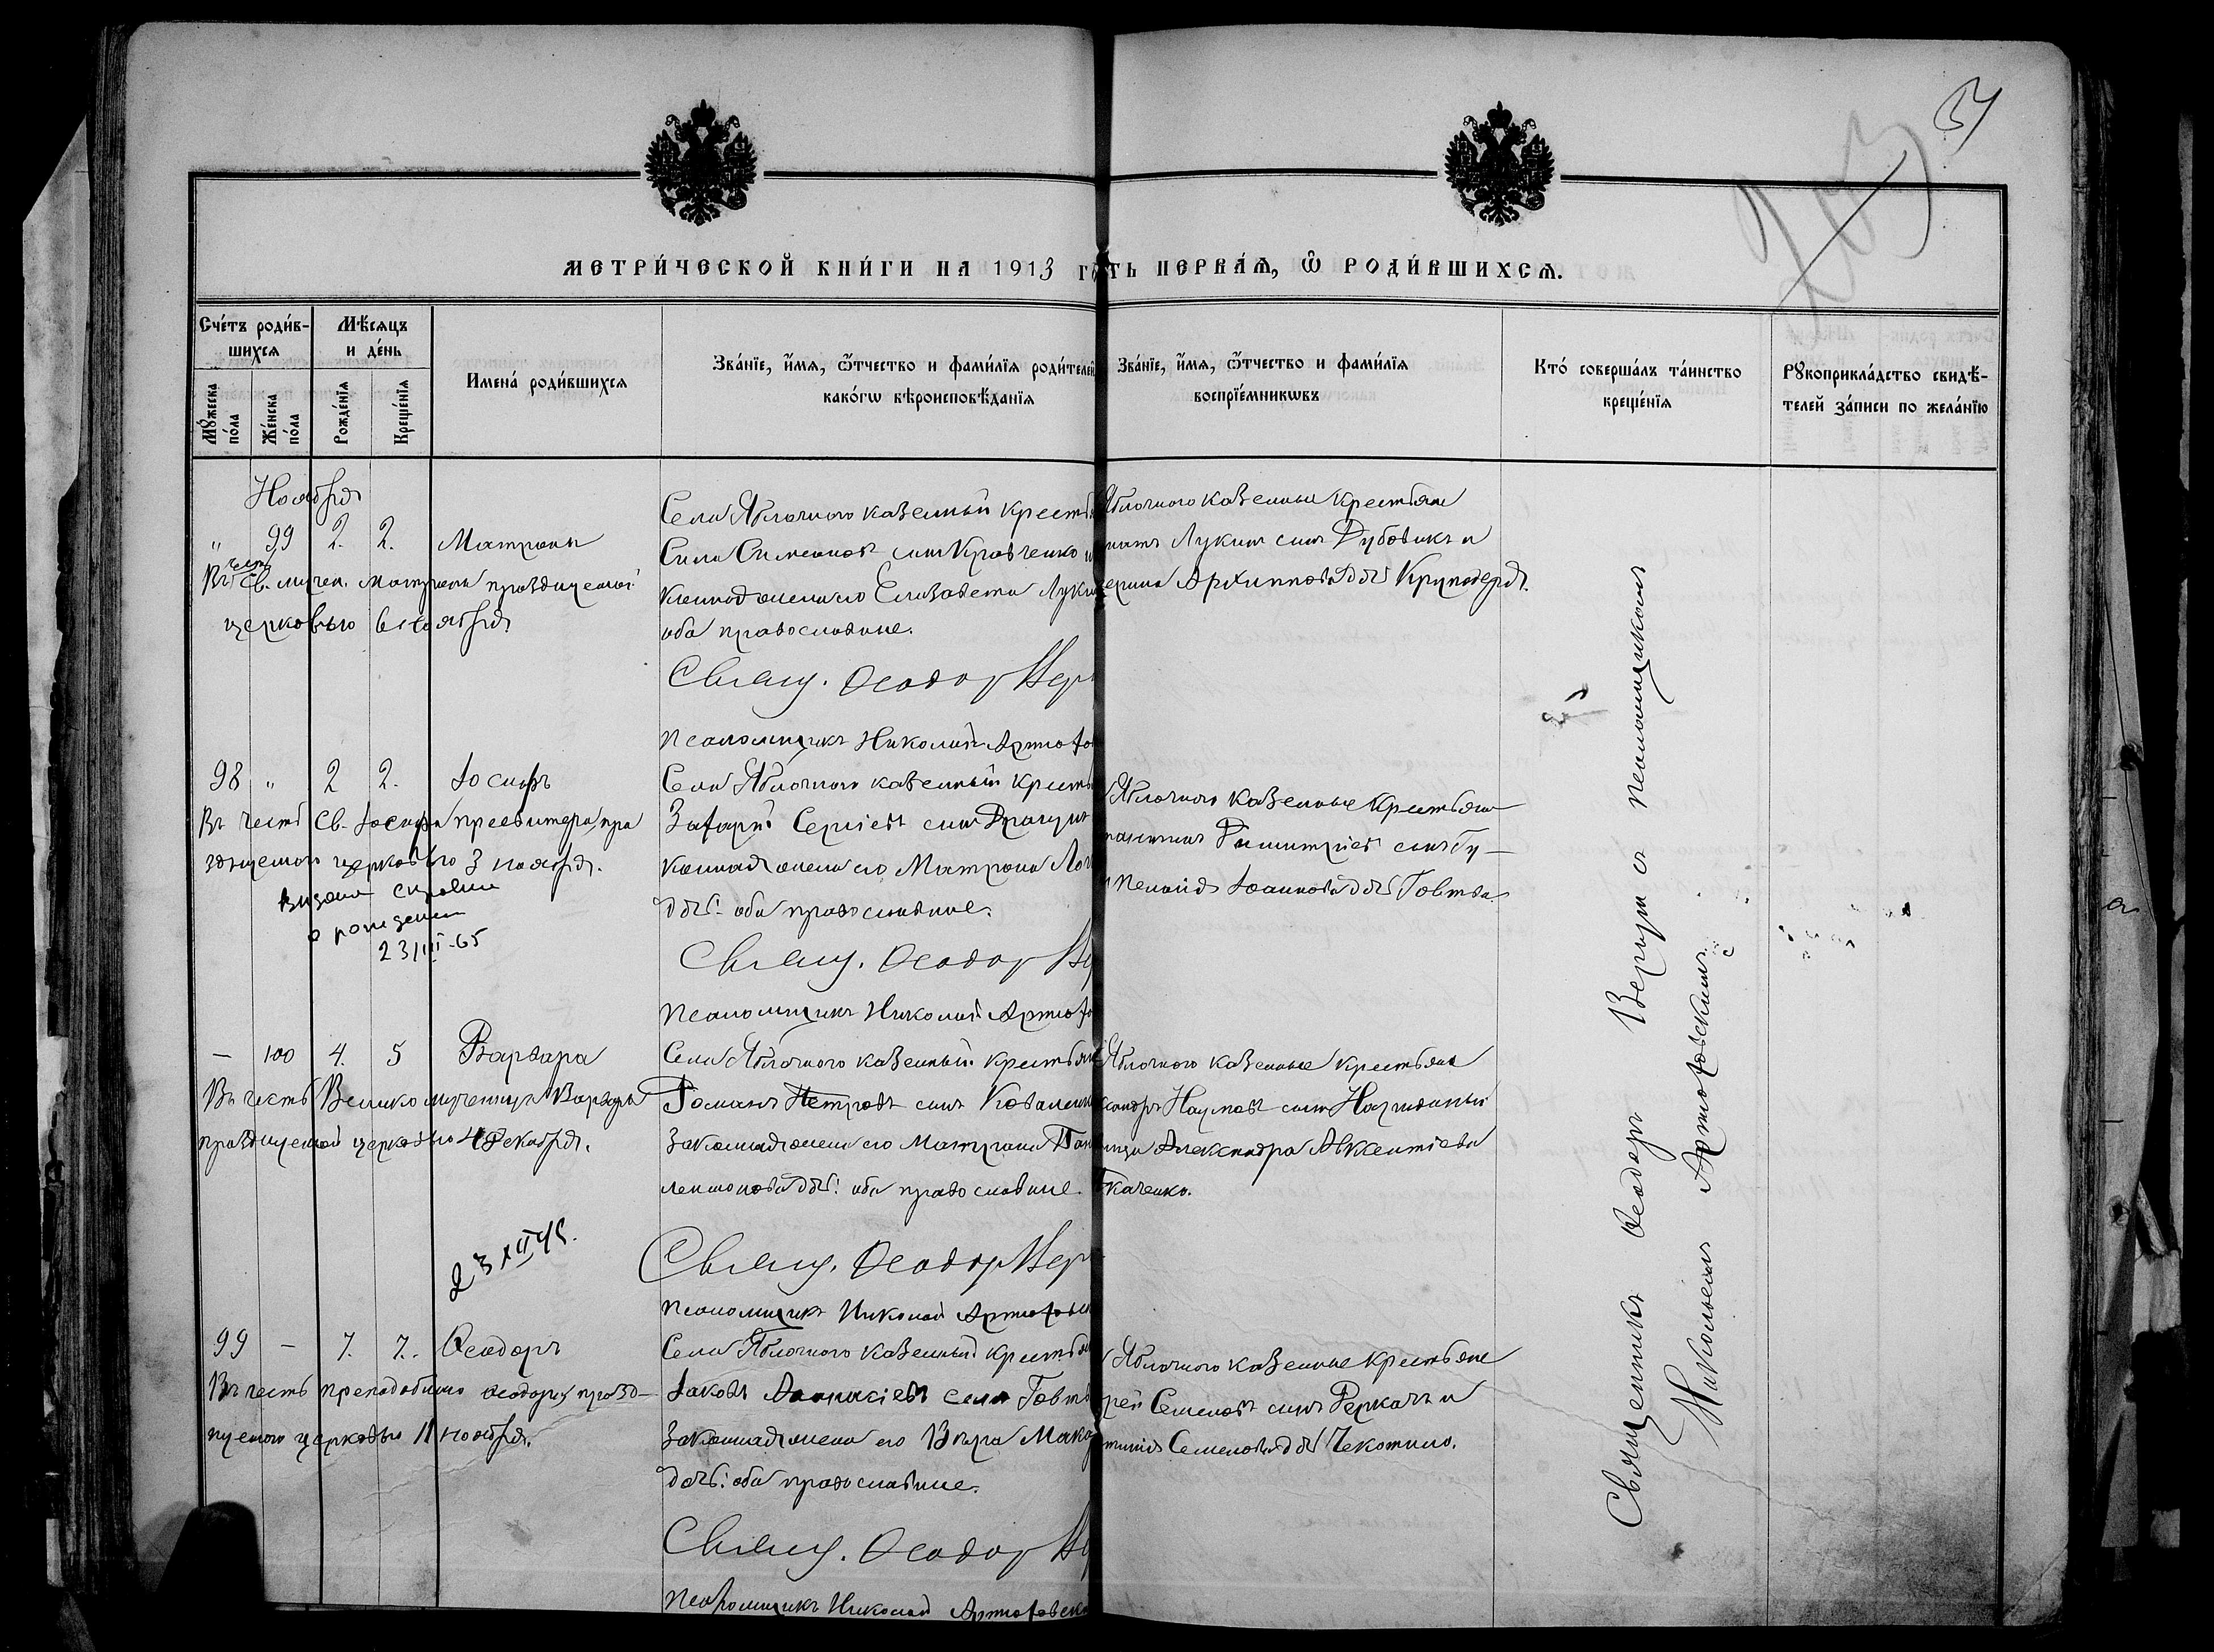 57
203
МЕТРИ́ЧЕСКОЙ КНИ́ГИ НА 1913 ГО
ТЬ ПЕРВА́Ѧ, Ѿ РОДИ́ВШИХСѦ.
Сче́тъ роди́в-
шихсѧ
Мꙋ́жеска по́ла
Же́нска по́ла
Мѣ́сѧцъ
и де́нь
Рожде́нїѧ
Креще́нїѧ
Имена́ роди́вшихсѧ
Зва́нїе, и́мѧ, ѻ́тчество и фами́лїѧ роди́телей
како́гѡ вѣроисповѣ́данїѧ
Зва́нїе, и́мѧ, ѻ́тчество и фами́лїѧ
воспрїе́мникѡвъ
Кто́ соверша́лъ та́инство
креще́нїѧ
Рꙋкоприкла́дство свидѣ́-
телей за́писи по жела́нїю
Ноября
" 99 2. 2. Матрона
Въ честь св. мучен. Матроны празднуемой
церковью 6 ноября.
Села Яблочного казенный крестья
Сила Симеоновъ сынъ Кравченко и
коннаѧ жена его Елизавета Луки
оба православные.
Свящ. Ѳеодор Вер
Псаломщикъ Николай Артюхо
Яблочного казенные крестьяне
Лукинъ сынъ Дубовикъ и
Архиппова дочь Круподеря.
98 " 2 2. Іосифъ
Въ честь св. Іосифа пресвитера, пра
зднуемого церковью 3 ноября.
Видана справка
о рожден
23/III-65
Села Яблочного казенный кресть
Захарій Сергіевъ сынъ
конная жена его Матрона
дочь: оба православные.
Свящ. Ѳеодор Ве
Псаломщикъ Николай Артюхо
Яблочного казенные крестьяне
Димитріев сынъ Гу-
Іоаннова дочь Говтва
— 100 4. 5 Варвара
Въ честь Великомученицы Варвары
празднуемой церковью 4 Декабря.
23 XII 45.
Села Яблочного казенный крестьян
Романъ Петровъ сынъ Коваленк
законная жена его Матрона Пан
дочь: оба православные.
Свящ. Ѳеодор Вер
Псаломщикъ Николай Артюховс
Яблочного казенные крестьяне
Наумовъ сынъ
Александра Авксентіева
Ткаченко.
99 — 7. 7. Ѳеодоръ
Въ честь преподобного Ѳеодора, празд-
нуемого церковью 11 ноября.
Села Яблочного казенный крестья
Іаковъ сынъ Говтв
законная жена его Вѣра Мака
дочь: оба православные.
Свящ. Ѳеодор Ве
Псаломщикъ Николай Артюховск
Яблочного казенные крестьяне
рей Семеновъ сынъ Деркачъ и
Семенова дочь
Священникъ Ѳеодоръ Вергунъ съ псаломщикомъ
Николаемъ Артюховскимъ